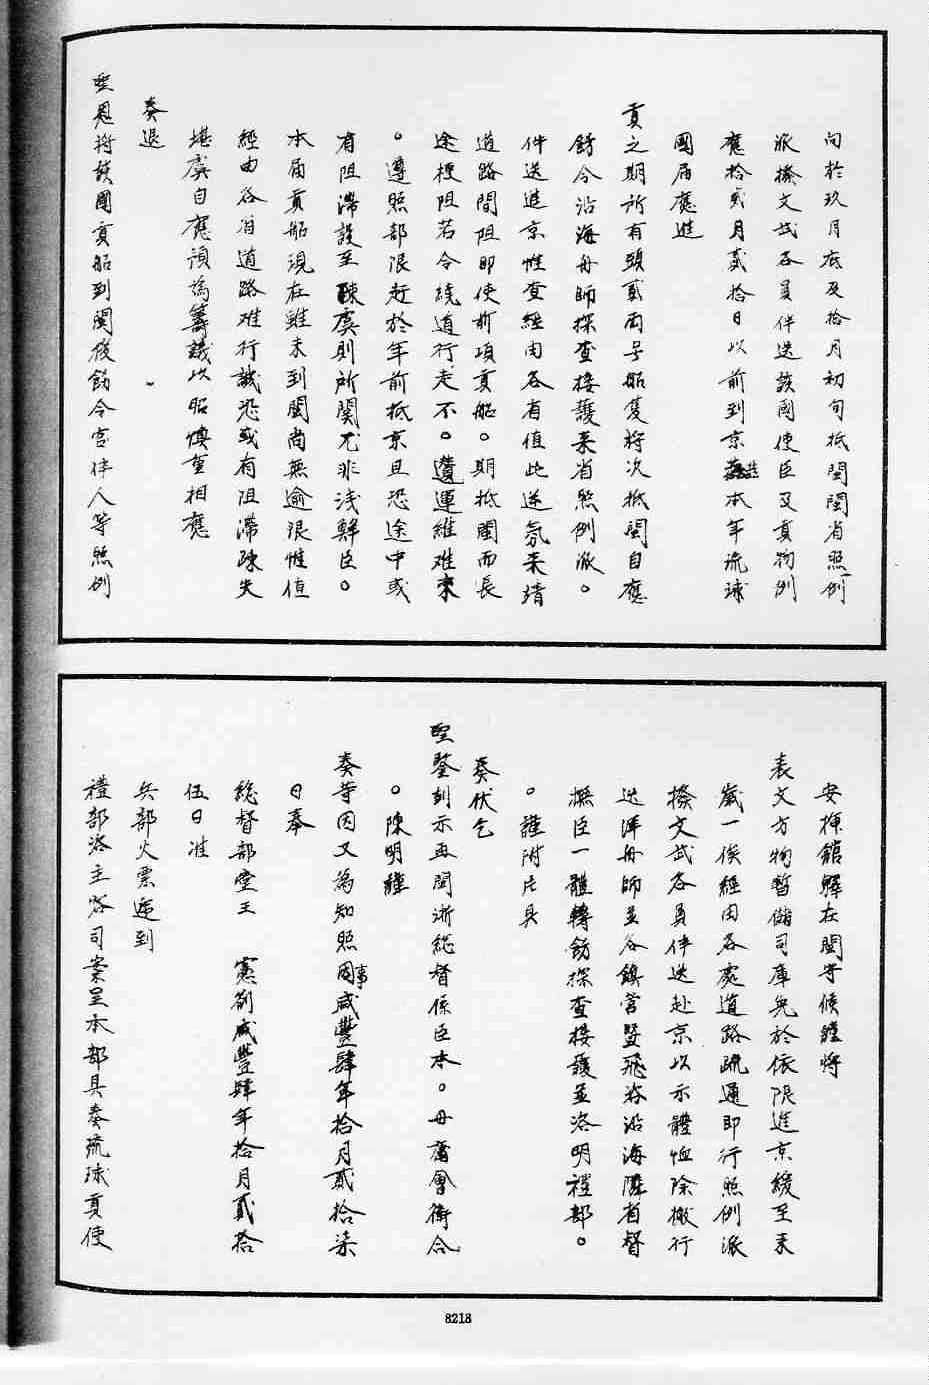 向於玖月底及拾月初旬抵閩閩省照例
派撥文武各員伴送該國使臣及貢物例
應拾貳月貳拾日以前到京茲本年琉球
國屆應進
貢之期所有頭貳兩号船隻將次抵閩自應
飭令沿海舟師探查接護来省照例派。
件送進京惟查經由各有值此逆氛未靖
道路間阻即使前項貢船。期抵閩而長
途梗阻若令繞道行走不。遷運維难來
。遵照部限赶於年前抵京且恐途中或
有阻滞設至疎虞則所関尤非浅鮮臣。
本届貢船現在雖未到閩尚無逾限惟值
經由各省道路难行誠恐或有阻滞疎失
堪虞自應預為籌議以昭慎重相應
奏退
聖恩將該國貢船到閩後飭令官伴人等照例
安揷館驛在閩守候謹將
表文方物暫儲司庫免於依限進京緩至来
歲一俟經由各處道路疏通即行照例派
撥文武各員伴送赴京以示體恤除檄行
送洋舟師並各鎮營暨飛咨沿海隣省督
撫臣一體轉飭探查接護並洛明禮部。
。謹附片具
奏伏乞
聖鑒刻示再閩浙総督係臣本。毋庸會衔合
。陳明謹
奏等因又為知照事國咸豐肆年拾月貳拾柒
日奉
総督部堂王　憲劄咸豐肆年拾月貳拾
伍日准
兵部火票遞到
禮部洛主客司案呈本部具奏琉球貢使
8213